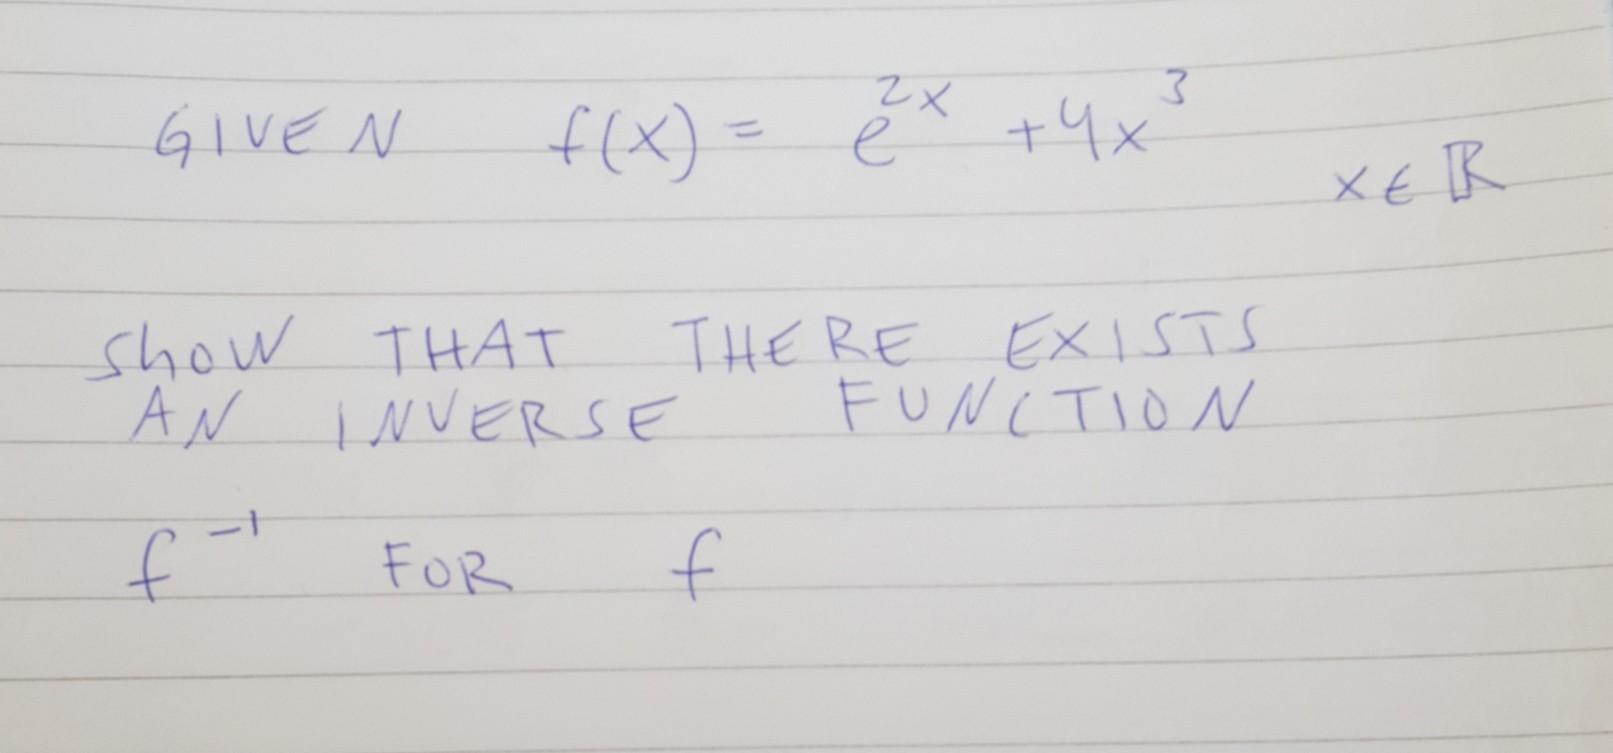 GIVEN f(x) = e^{2x} + 4x^3 x ∈ ℝ
Show THAT THERE EXISTS
AN INVERSE FUNCTION
f^{-1} FOR f